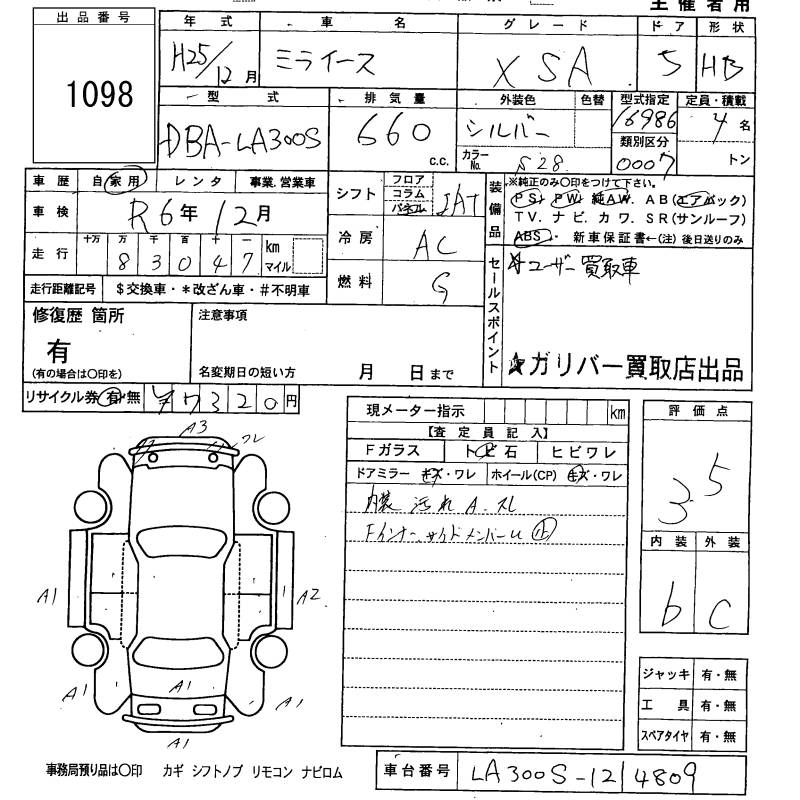 主催者用
出品番号
1098
年式 車名 グレード ドア 形状
H25/12月 ミライース X SA 5 HB
型式 排気量 外装色 色替 型式指定 定員・積載
DBA-LA300S 660 c.c. シルバー 16986 4名
カラーNo. S28 類別区分 0007 トン
車歴 自家用 レンタ 事業.営業車
車検 R6年12月
走行 十万 万 千 百 十 一 km マイル
83047
走行距離記号 $交換車・*改ざん車・#不明車
シフト フロア コラム パネル IAT
冷房 AC
燃料 G
装備品 ※純正のみ〇印をつけて下さい。
PS. PW. 純AW. AB(エアバック)
TV. ナビ. カワ. SR(サンルーフ)
ABS. 新車保証書←(注)後日送りのみ
セールスポイント
ユーザー買取車
★ガリバー買取店出品
修復歴 箇所
有
(有の場合は〇印を)
注意事項
名変期日の短い方 月 日まで
リサイクル券 有・無 ¥7320円
現メーター指示 km
【査定員記入】
Fガラス トビ石 ヒビワレ
ドアミラー キズ・ワレ ホイール(CP) キズ・ワレ
内装 汚れ A. スレ
Fインナー サイドメンバー U 止
評価点
3.5
内装 外装
b C
ジャッキ 有・無
工具 有・無
スペアタイヤ 有・無
A3 ワレ
A1 A2
A1 A1 A1
A1
事務局預り品は〇印 カギ シフトノブ リモコン ナビロム
車台番号 LA300S-1214809